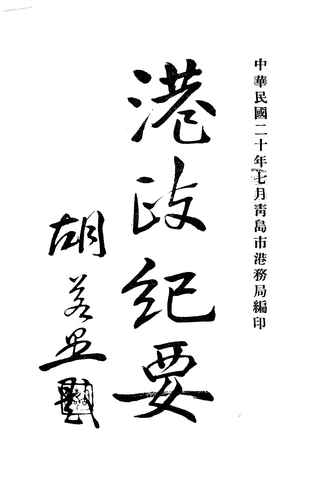 中華民國二十年七月靑島市港務局編印
港政紀要
胡若愚